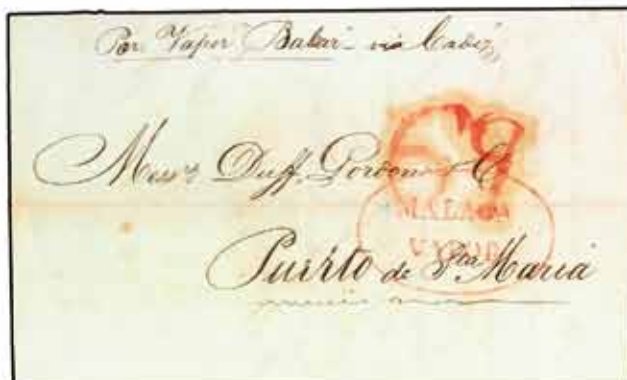 Por Vapor "Balear" via Cadiz,
Mess.rs Duff, Gordon & Co
MALAGA
VAPOR
Puerto de Sta Maria